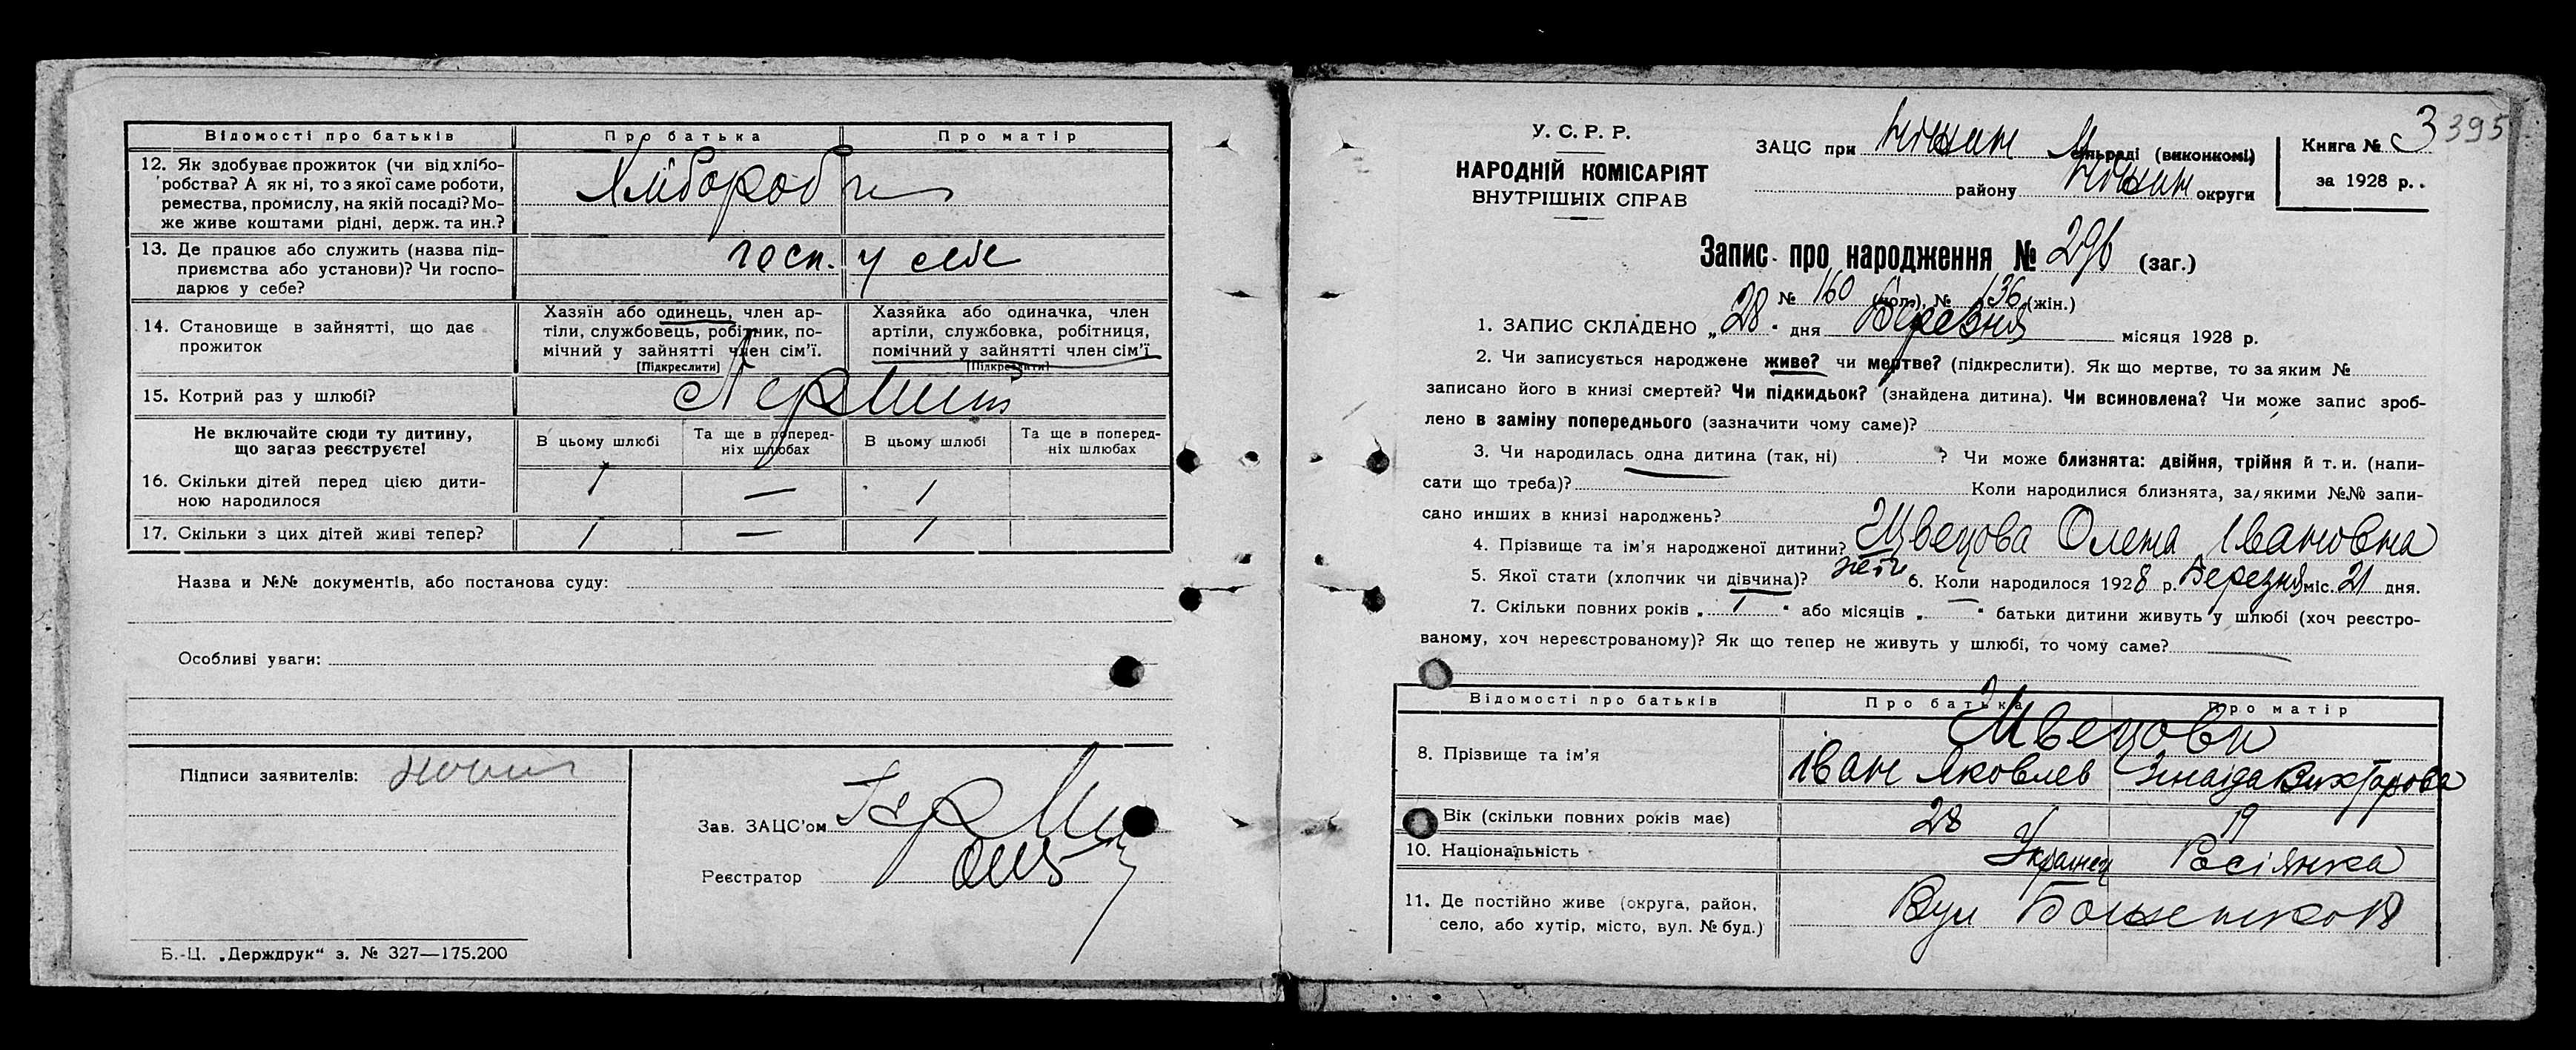 Відомості про батьків Про батька Про матір
12. Як здобуває прожиток (чи від хлібо-
робства? А як ні, то з якої саме роботи,
ремества, промислу, на якій посаді? Мо-
же живе коштами рідні, держ. та ин.?
Хлібороби
13. Де працює або служить (назва під-
приємства або установи)? Чи госпо-
дарює у себе?
госп. у себе
14. Становище в зайнятті, що дає
прожиток
Хазяїн або одинець, член ар-
тіли, службовець, робітник, по-
мічний у зайнятті член сім'ї.
[Підкреслити]
Хазяйка або одиначка, член
артіли, службовка, робітниця,
помічний у зайнятті член сім'ї
[Підкреслити]
15. Котрий раз у шлюбі?
Не включайте сюди ту дитину,
що загаз реєструєте!
В цьому шлюбі
Та ще в поперед-
ніх шлюбах
В цьому шлюбі
Та ще в поперед-
ніх шлюбах
16. Скільки дітей перед цією дити-
ною народилося
1 — 1
17. Скільки з цих дітей живі тепер? 1 — 1
Назва и №№ документів, або постанова суду:
Особливі уваги:
Підписи заявителів:
Зав. ЗАЦС'ом
Реєстратор
Б.-Ц. „Держдрук“ з. № 327—175.200
У. С. Р. Р.
НАРОДНІЙ КОМІСАРІЯТ
ВНУТРІШНІХ СПРАВ
ЗАЦС при Ніжин М сільраді (виконкомі)
району Ніжин округи
Книга № 3 395
за 1928 р.
Запис про народження № 296 (заг.)
№ 160 (чол.), № 136 (жін.)
1. ЗАПИС СКЛАДЕНО „28“ дня Березня місяця 1928 р.
2. Чи записується народжене живе? чи мертве? (підкреслити). Як що мертве, то за яким №
записано його в книзі смертей? Чи підкидьок? (знайдена дитина). Чи всиновлена? Чи може запис зроб-
лено в заміну попереднього (зазначити чому саме)?
3. Чи народилась одна дитина (так, ні) ? Чи може близнята: двійня, трійня й т. и. (напи-
сати що треба)? Коли народилися близнята, за якими №№ запи-
сано инших в книзі народжень?
4. Прізвище та ім'я народженої дитини? Швецова Олена Івановна
5. Якої стати (хлопчик чи дівчина)? 6. Коли народилося 1928 р. Березня міс. 21 дня.
7. Скільки повних років „1“ або місяців „—“ батьки дитини живуть у шлюбі (хоч реєстро-
ваному, хоч нереєстрованому)? Як що тепер не живуть у шлюбі, то чому саме? —
Відомості про батьків Про батька Про матір
Швецови
8. Прізвище та ім'я Іван Яковлев Зинаїда Викторова
Вік (скільки повних років має) 28 19
10. Національність Украінец Росіянка
11. Де постійно живе (округа, район,
село, або хутір, місто, вул. № буд.)
Вул